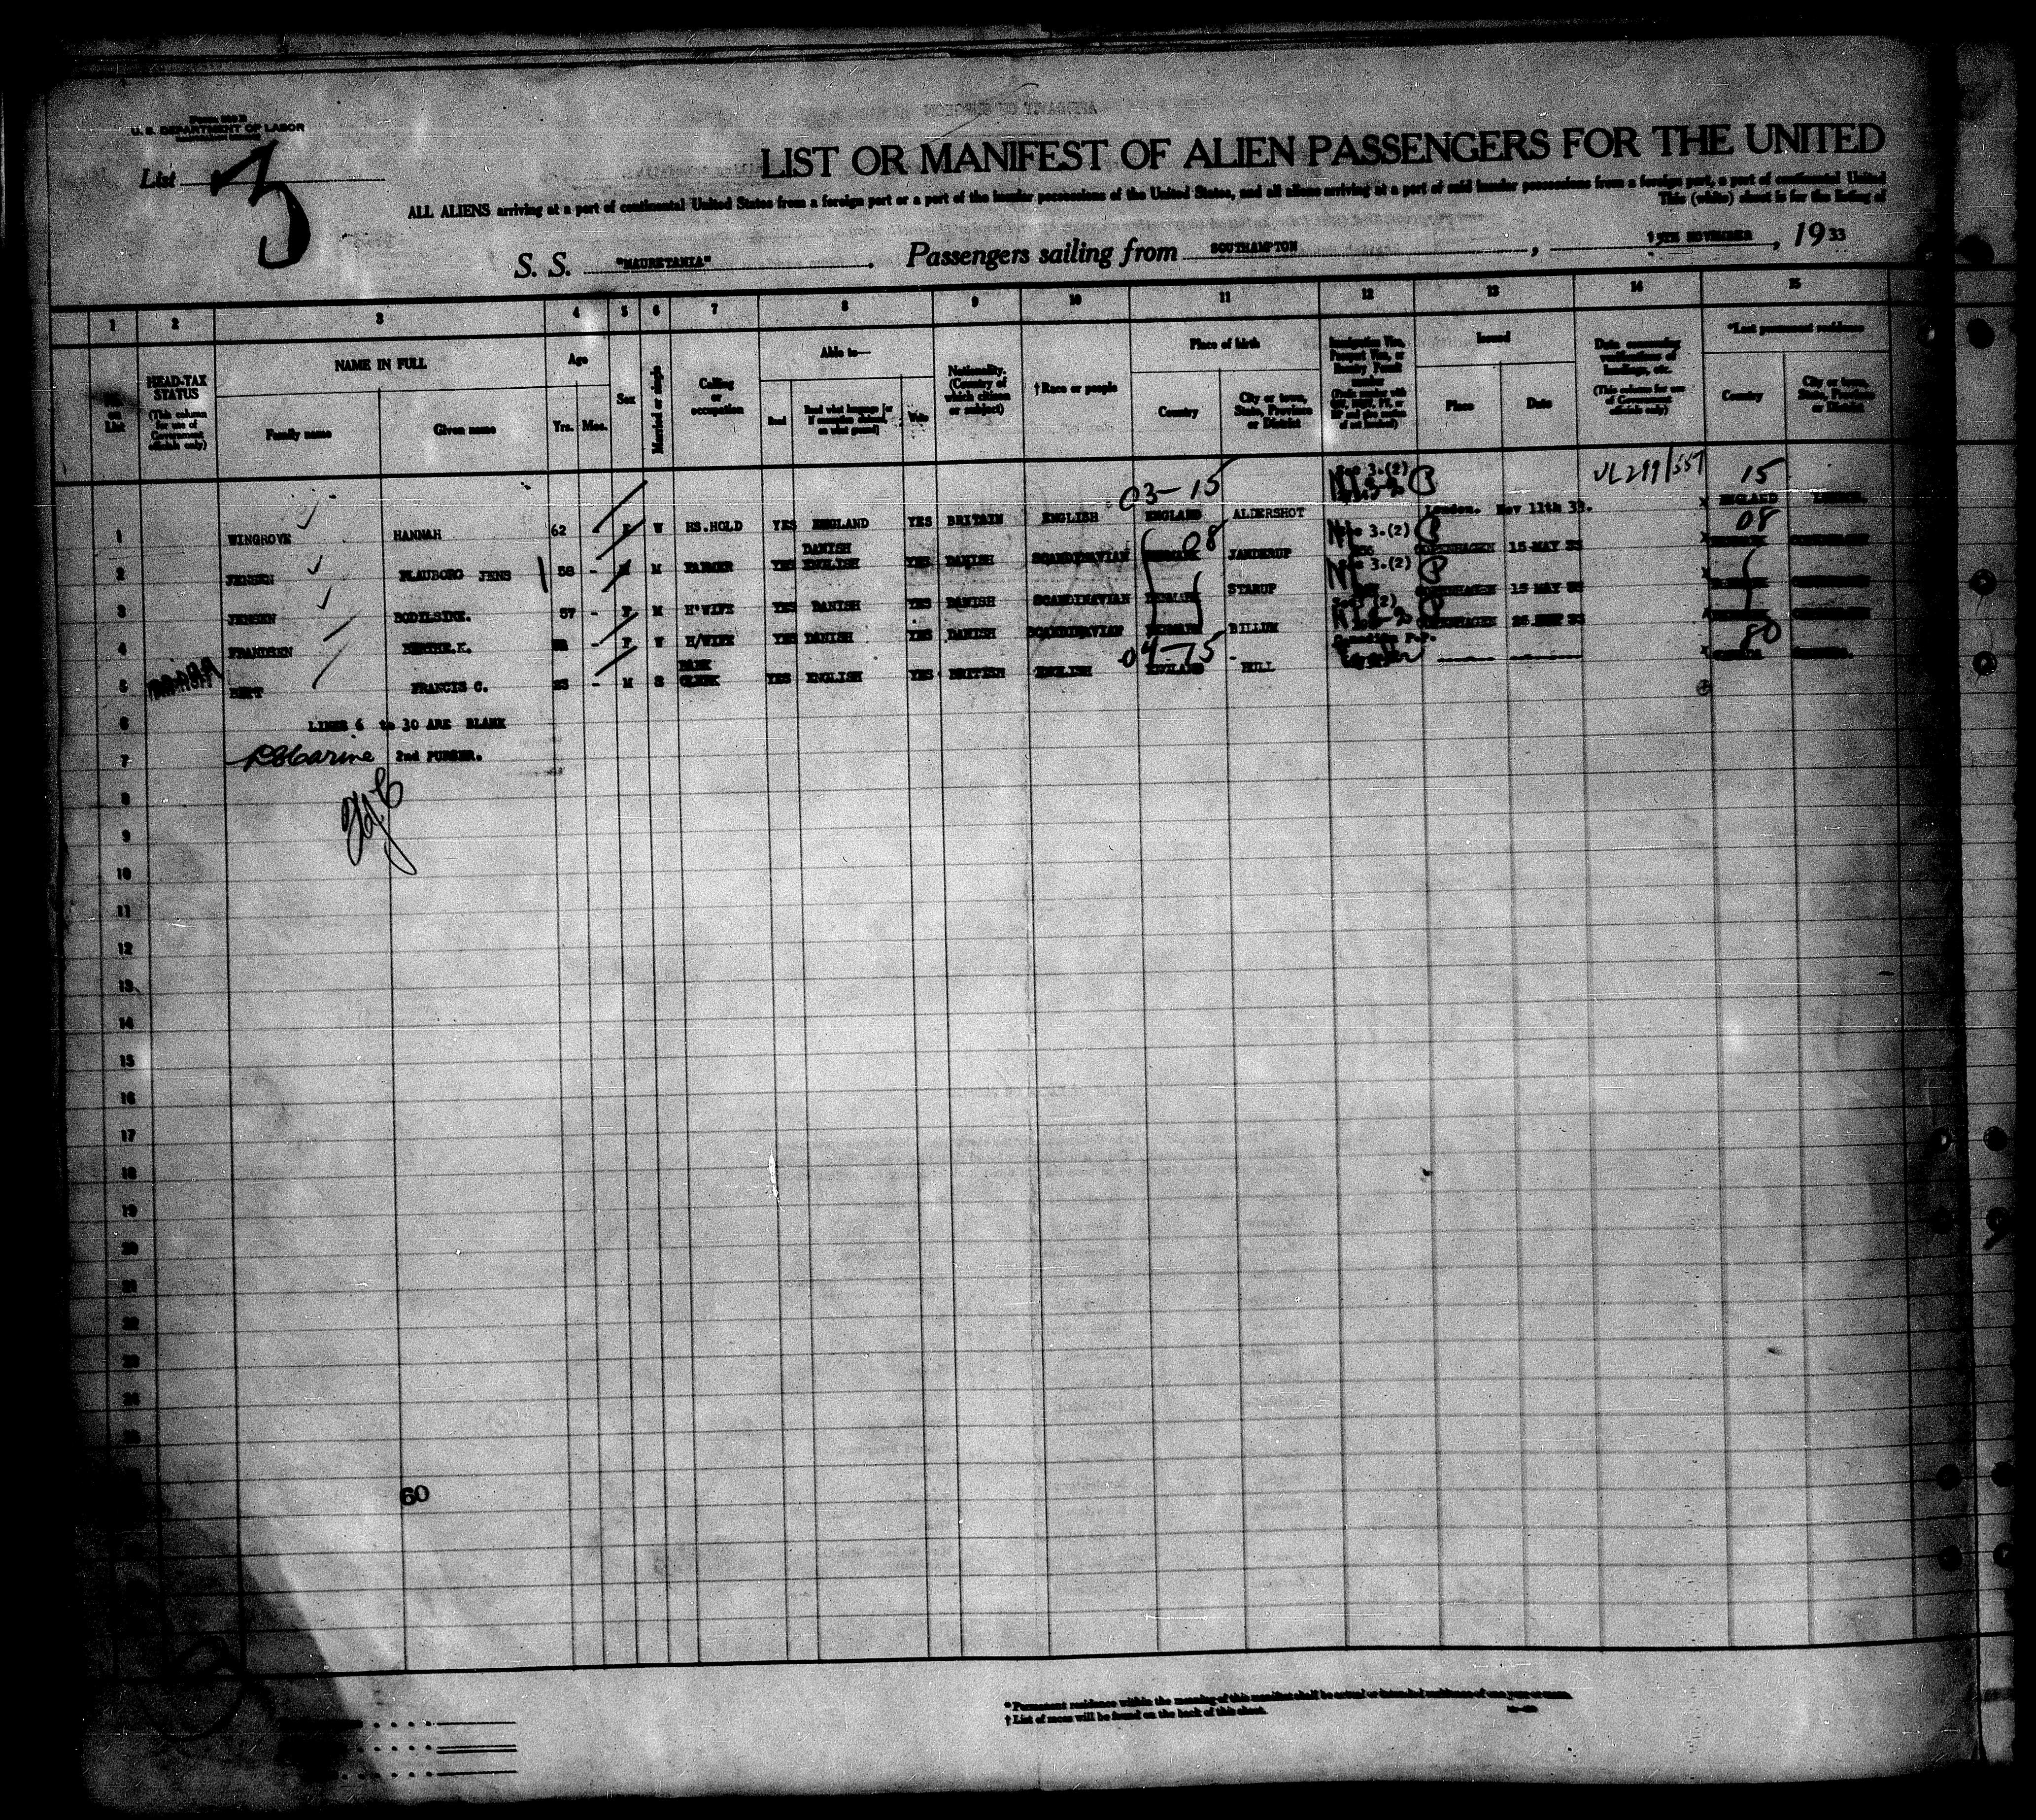 U. S. DEPARTMENT OF LABOR
List 3
LIST OR MANIFEST OF ALIEN PASSENGERS FOR THE UNITED
ALL ALIENS arriving at a port of continental United States from a foreign port or a port of the insular possessions of the United States, and all aliens arriving at a port of said insular possessions from a foreign port, a port of continental United
This (white) sheet is for the listing of
S. S. "MAURETANIA" Passengers sailing from SOUTHAMPTON, NOVEMBER, 1933
1 2 3 4 5 6 7 8 9 10 11 12 13 14 15
No. on List
HEAD-TAX STATUS (This column for use of Government officials only)
NAME IN FULL
Family name
Given name
Age
Yrs. Mos.
Sex
Married or single
Calling or occupation
Able to—
Read
Read what language [or if exemption claimed, on what ground]
Write
Nationality. (Country of which citizen or subject)
† Race or people
Place of birth
Country
City or town, State, Province or District
Immigration Visa, Passport Visa, or Reentry Permit number
Issued
Place
Date
Data concerning verifications of landings, etc. (This column for use of Government officials only)
*Last permanent residence
Country
City or town, State, Province or District
03-15 Sec 3.(2) 15
1 WINGROVE HANNAH 62 F W HS.HOLD YES ENGLAND YES BRITAIN ENGLISH ENGLAND ALDERSHOT London. Nov 11th 33. ENGLAND
08 3.(2) 08
2 JENSEN PLAUBORG JENS 58 - M M FARMER YES DANISH ENGLISH YES DANISH SCANDINAVIAN DENMARK JANDERUP COPENHAGEN 15 MAY 33
3.(2)
3 JENSEN BODILSINE. 57 - F M H'WIFE YES DANISH YES DANISH SCANDINAVIAN DENMARK STARUP COPENHAGEN 15 MAY
4 FRANDSEN K. - F W H/WIFE YES DANISH YES DANISH SCANDINAVIAN DENMARK BILLUM COPENHAGEN
04-15 Canadian P.P. 80
5 FRANCIS C. - M S BANK CLERK YES ENGLISH YES BRITISH ENGLISH ENGLAND HULL CANADA
6 LINES 6 to 30 ARE BLANK
7 2nd PURSER.
8
9
10
11
12
13
14
15
16
17
18
19
20
21
22
23
24
25
60
* Permanent residence within the meaning of this manifest shall be actual or intended residence of one year or more.
† List of races will be found on the back of this sheet.